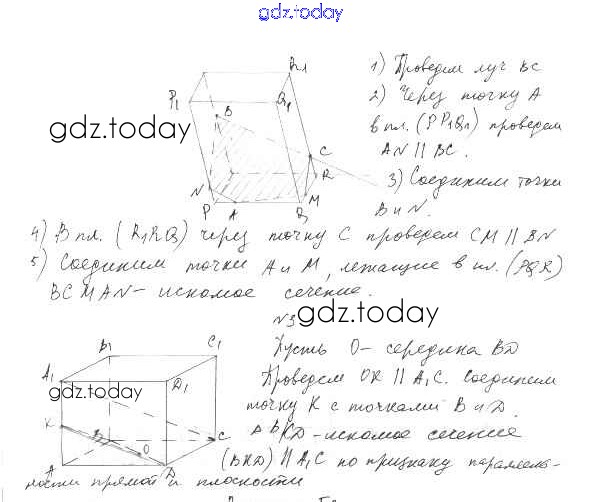 gdz.today
R1
P1
B
Q1
gdz.today
C
R
N
P
A
Q
M
1) Проведем луч BC
2) Через точку A
в пл. (PP1Q1) проведем
AN || BC.
3) Соединим точки
B и N.
4) В пл. (R1RQ) через точку C проведем CM || BN
5) Соединим точки A и M, лежащие в пл. (PQR)
BCMAN - искомое сечение.
N3
gdz.today
B1
C1
A1
D1
gdz.today
K
B
O
C
A
D
Пусть O - середина BD
Проведем OK || A1C. Соединим
точку K с точками B и D.
Δ BKD - искомое сечение
(BKD) || A1C по признаку параллель-
ности прямой и плоскости